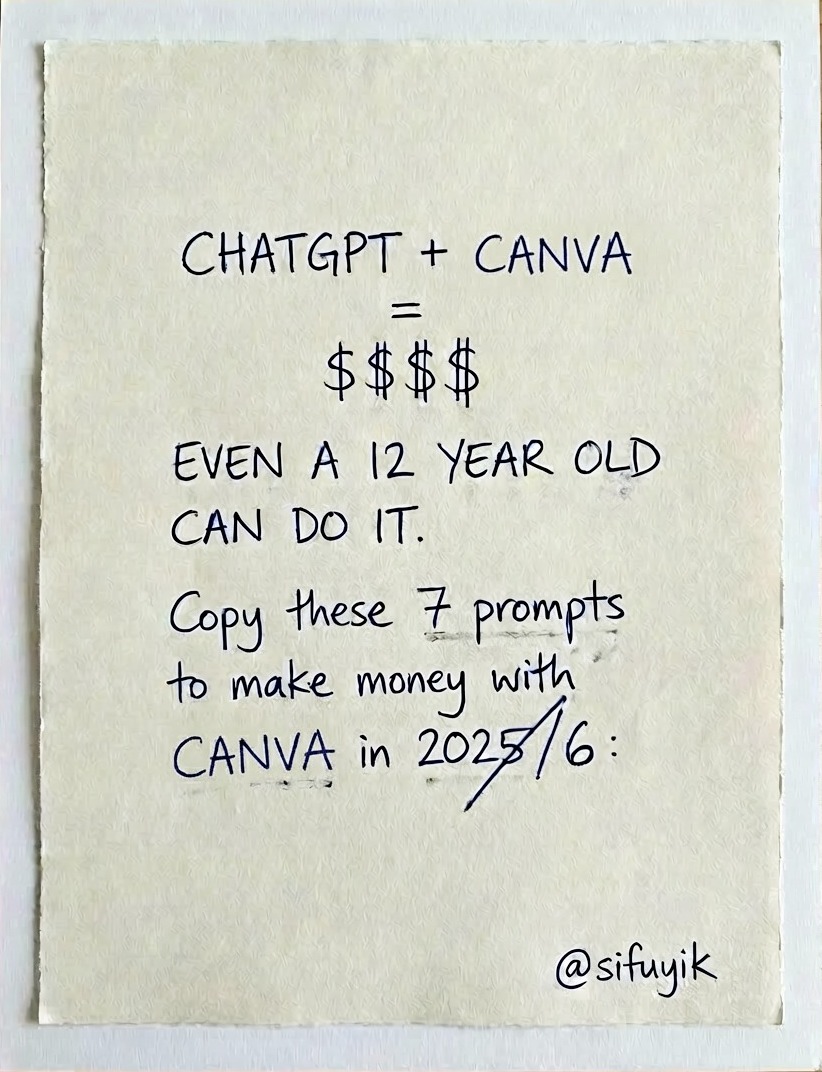 CHATGPT + CANVA
=
$$$$
EVEN A 12 YEAR OLD
CAN DO IT.
Copy these 7 prompts
to make money with
CANVA in 2025/6:
@sifuyik